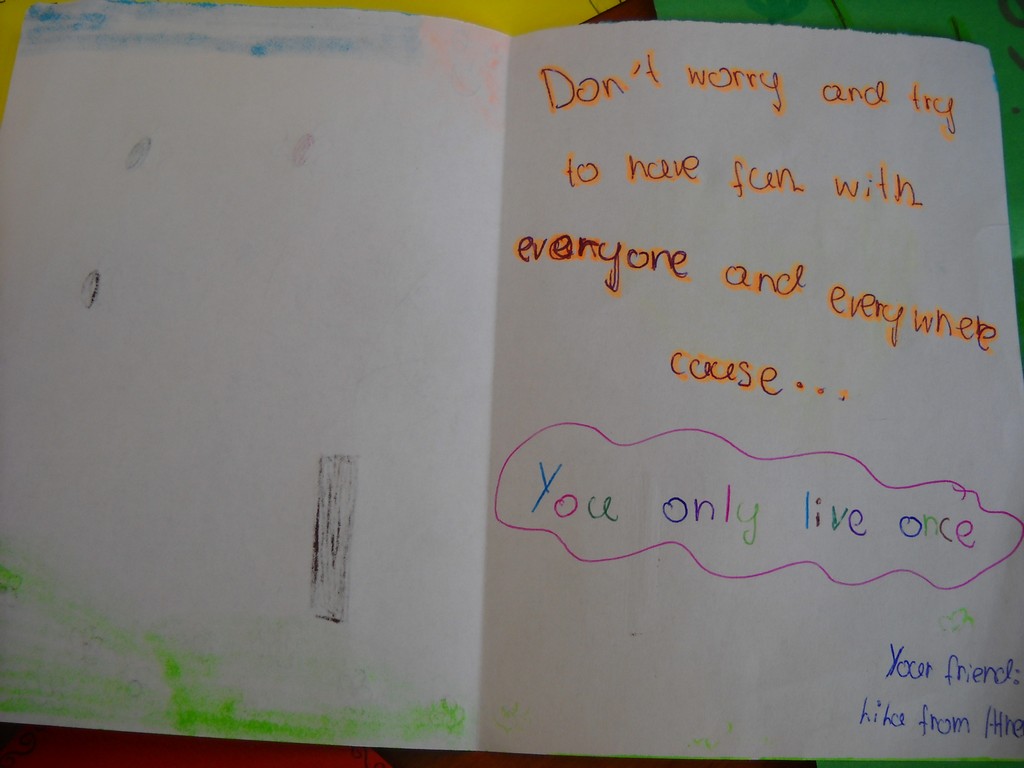 Don't worry and try
to have fun with
everyone and everywhere
cause...
You only live once
Your friend:
from